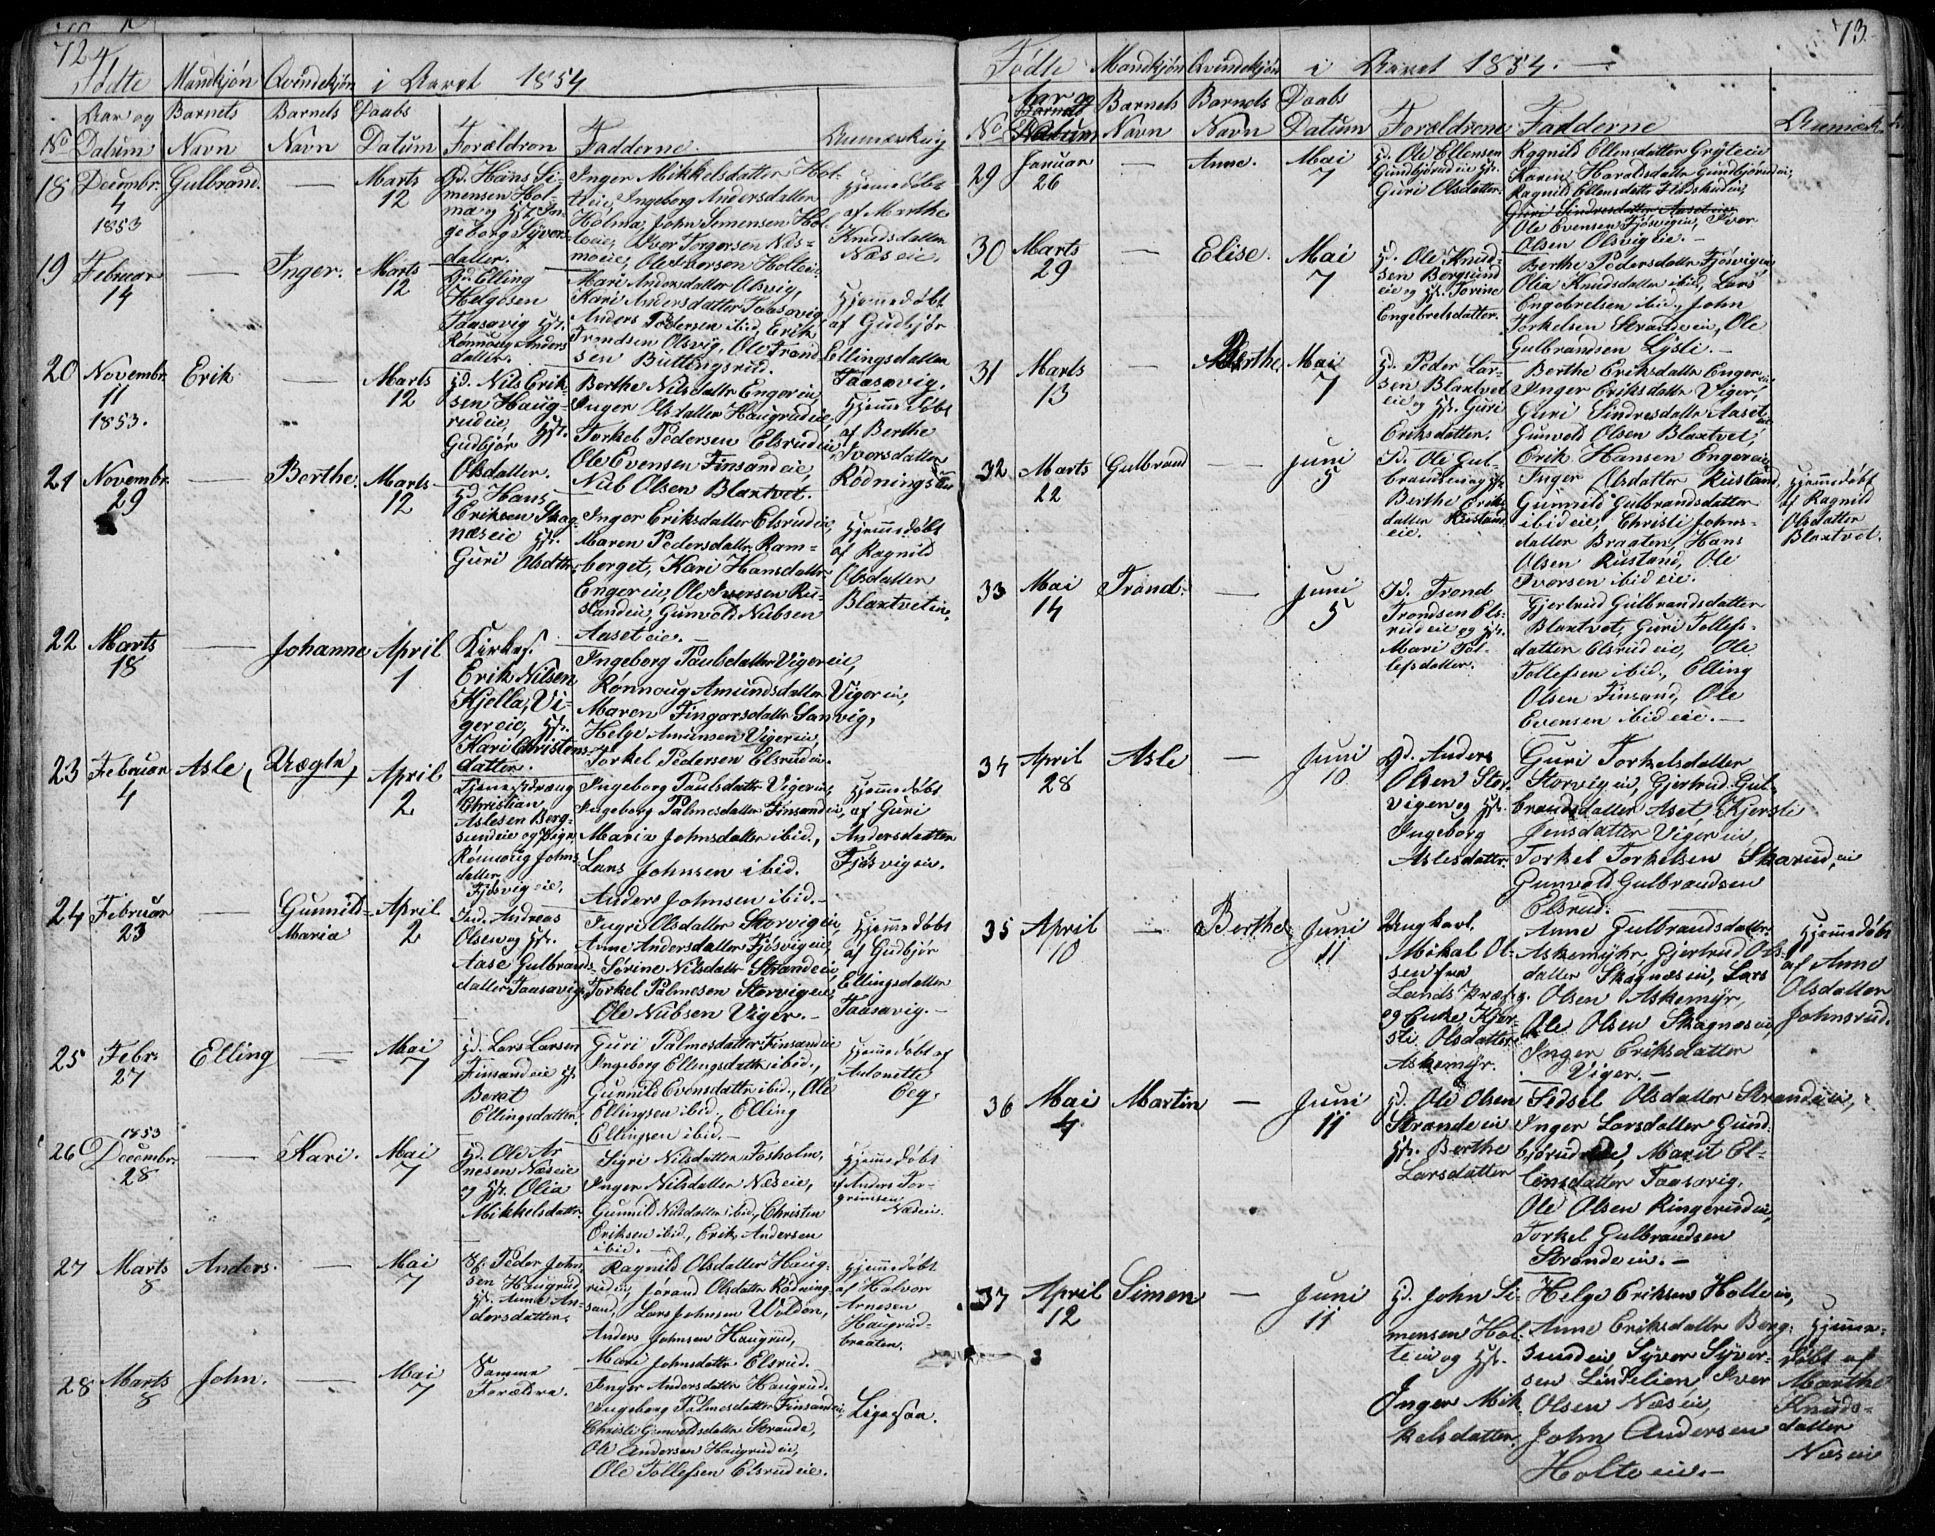 72
Födte Mandkjön Qvindekjön i Aaret 1854
No Aar og Datum Barnets Navn Barnets Navn Daabs Datum Forældren Fadderne. Anmærkning
18 Decembr. 4 1853 Gulbrand. — Marts 12
Gd. Hans Simensen Holma og Hst. Ingeborg Syversdatter.
Inger Mikkelsdatter Holteie, Ingeborg Andersdatter Holma, John Simensen Holteie, Iver Torgersen Næsmoeie, Ole Iversen Holteie.
Hjemmedöbt af Marthe Knudsdatter Næseie.
19 Februar 14 — Inger. Marts 12
Gd. Elling Helgesen Taasavig Hst. Rönnoug Andersdatter.
Mari Andersdatter Olsvig, Kari Andersdatter Taasavig, Anders Pedersen ibid, Erik Trondsen Olsvig, Ole Trondsen Buttingsrud.
Hjemmedöbt af Gudbjör Ellingsdatter Taasavig.
20 Novembr. 11 1853. Erik — Marts 12
Hd. Nils Eriksen Haugrudeie, Hst. Gudbjör Olsdatter.
Berthe Nilsdatter Engereie, Inger Olsdatter Haugrudeie, Torkel Pedersen Elsrudeie, Ole Evensen Finsandeie, Nub Olsen Blaxtvet.
Hjemmedöbt af Berthe Iversdatter Rödningseie
21 Novembr. 29 — Berthe. Marts 12
Hd. Hans Eriksen Skagnæseie Hst. Guri Olsdatter
Inger Eriksdatter Elsrudeie, Maren Pedersdatter Ramberget, Kari Hansdatter Engereie, Ole Iversen Rustandeie, Gunvold Nubsen Aaseteie. —
Hjemmedöbt af Ragnild Olsdatter Blaxtveteie.
22 Marts 18 — Johanne April 1
Kirkes. Erik Nilsen Kjella, Vigereie, Hst. Kari Christensdatter.
Ingeborg Paulsdatter Vigereie, Rönnoug Amundsdatter Vigereie, Maren Fingarsdatter Sanvig, Helge Amunsen Vigereie, Torkel Pedersen Elsrudeie.
23 Februar 4 Asle, (Uægte) April 2
Tjenestedreng Christian Aslesen Bergsundeie og Pige Rönnoug Johnsdatter Fjösvigeie.
Ingeborg Paulsdatter Vigereie, Ingeborg Palmesdatter Finsandeie, Maria Johnsdatter ibid., Lars Johnsen ibid. Anders Johnsen ibid. —
Hjemmedöbt af Guri Andersdatter Fjösvigeie.
24 Februar 23 — Gunnild Maria April 2
Ind. Andreas Olsen og Hst. Aase Gulbrandsdatter Taasavig.
Ingri Olsdatter Storvigeie, Anne Andersdatter Fjösvigeie, Sörine Nilsdatter Strandeeie, Torkel Palmesen Storvigeie, Ole Nubsen Viger. —
Hjemmedöbt af Gudbjör Ellingsdatter Taasavig. —
25 Febr. 27 Elling — Mai 7
Hd. Lars Larsen Finsandeie Hst. Beret Ellingsdatter.
Guri Palmesdatter Finsandeie, Ingeborg Ellingsdatter ibid., Gunnild Evensdatter ibid., Ole Ellingsen ibid., Elling Ellingsen ibid. —
Hjemmedöbt af Antonette Eeg.
26 1853 Decembr. 28 — Kari. Mai 7
Hd. Ole Arnesen Næseie og Hst. Olia Mikkelsdatter.
Sigri Nilsdatter Fosholm, Inger Nilsdatter Næseie, Gunnild Nilsdatter ibid., Christen Eriksen ibid., Erik Andersen ibid. —
Hjemmedöbt af Anders Torgrimsen Næseie.
27 Marts 8 Anders. — Mai 7
Peder Johnsen Haugrud, Hst. Anne Andersdatter.
Ragnild Olsdatter Haugrudeie, Jörand Olsdatter Rödningsand, Lars Johnsen Volden, Anders Johnsen Haugrud, Mari Johnsdatter Elsrud.
Hjemmedöbt af Halvor Arnesen Haugrudbraaten.
28 Marts 8 John. — Mai 7
Samme Forældre.
Inger Andersdatter Haugrud, Ingeborg Palmesdatter Finsandeie, Christi Gunvoldsdatter Strande, Ole Andersen Haugrudeie, Ole Tollefsen Elsrudeie.
Ligesaa.
73
Födte Mandkjön Qvindekjön i Aaret 1854. —
No Aar og Datum Barnets Navn Barnets Navn Daabs Datum Forældrene Fadderne Anmærk.
29 Januar 26 — Anne. Mai 7
Hd. Ole Ellensen Gundbjörudeie Hst. Guri Olsdatter.
Ragnild Ellensdatter Gröteie, Karen Haraldsdatter Gundbjörudeie, Ragnild Ellensdatter Fidskudeie, Guri Sindresdatter Aaseteie, Ole Evensen Fjösvigeie, Iver Olsen Olsvigeie. —
30 Marts 29 — Elise. Mai 7
Hd. Ole Knudsen Bergsundeie og Hst. Torine Engebretsdatter.
Berthe Pedersdatter Fjösvigeie, Olia Knudsdatter ibid, Lars Engebretsen ibid., John Torkelsen Strandeeie, Ole Gulbrandsen Lysli. —
31 Marts 13 — Berthe. Mai 7
Hd. Peder Larsen Blaxtveteie og Hst. Guri Eriksdatter.
Berthe Eriksdatter Engereie, Inger Eriksdatter Viger, Guri Sindresdatter Aaseteie, Gunvold Olsen Blaxtvet, Erik Hansen Engereie.
32 Marts 22 Gulbrand — Juni 5
Id. Ole Gulbrandsen og Hst. Berthe Eriksdatter Rustandeie.
Inger Olsdatter Rustand, Gunnild Gulbrandsdatter ibideie, Christi Johnsdatter Braaten, Hans Olsen Rustand, Ole Iversen ibideie.
Hjemmedöbt af Ragnild Olsdatter Blaxtvet.
33 Mai 14 Trond. — Juni 5
Id. Trond Trondsen Elsrudeie og Hst. Mari Tollefsdatter.
Gjertrud Gulbrandsdatter Blaxtvet, Guri Tollefsdatter Elsrudeie, Ole Tollefsen ibid., Elling Olsen Finsand, Ole Evensen ibideie. —
34 April 28 Asle — Juni 10
Gd. Anders Olsen Storvigen og Hst. Ingeborg Aslesdatter.
Guri Torkelsdatter Storvigeie, Gjertrud Gulbrandsdatter Aset, Kjersti Jensdatter Vigereie, Torkel Torkelsen Skarud,eie Gunvold Gulbrandsen Elsrud.
35 April 10 — Berthe Juni 11
Ungkarl Mikal Olsen fra Lands Præstg. og Enke Kjersti Olsdatter Askemyr.
Anne Gulbrandsdatter Askemyhr, Gjertrud Olsdatter Skagnæseie, Lars Olsen Askemyr, Ole Olsen Skagnæseie, Inger Eriksdatter Viger. —
Hjemmedöbt af Anne Olsdatter Johnsrud.
36 Mai 4 Martin — Juni 11
Hd. Ole Olsen Strandeeie Hst. Berthe Larsdatter
Sidsel Olsdatter Strandeeie, Inger Larsdatter Gundbjörudeie, Marit Ellensdatter Taasavig, Ole Olsen Ringerudeie, Torkel Gulbrandsen Strandeeie. —
37 April 12 Simen — Juni 11
Hd. John Simensen Holteie og Hst. Inger Mikkelsdatter.
Helge Eriksen Holteeie, Anne Eriksdatter Bergsundeie Syver Syversen Lindelien, Iver Olsen Næseie, John Andersen Holteeie. —
Hjemmedöbt af Marthe Knudsdatter Næseie